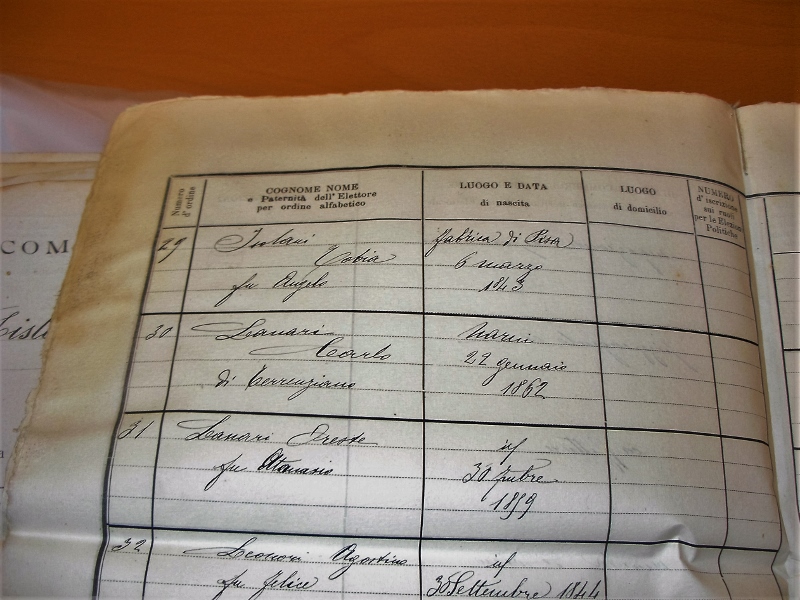 COM
Numero
d'ordine
COGNOME NOME
e Paternità dell'Elettore
per ordine alfabetico
LUOGO E DATA
di nascita
LUOGO
di domicilio
NUMERO
d'iscrizione
sui ruoli
per le Elezioni
Politiche
29
Isolani
Tobia
fu Angelo
fabbrica di Pisa
6 marzo
1843
30
Lanari
Carlo
di Terenziano
Narni
22 gennaio
1862
31
Lanari Oreste
fu Attanasio
id
30
32
Leonori Agostino
fu felice
id
30 Settembre 1844